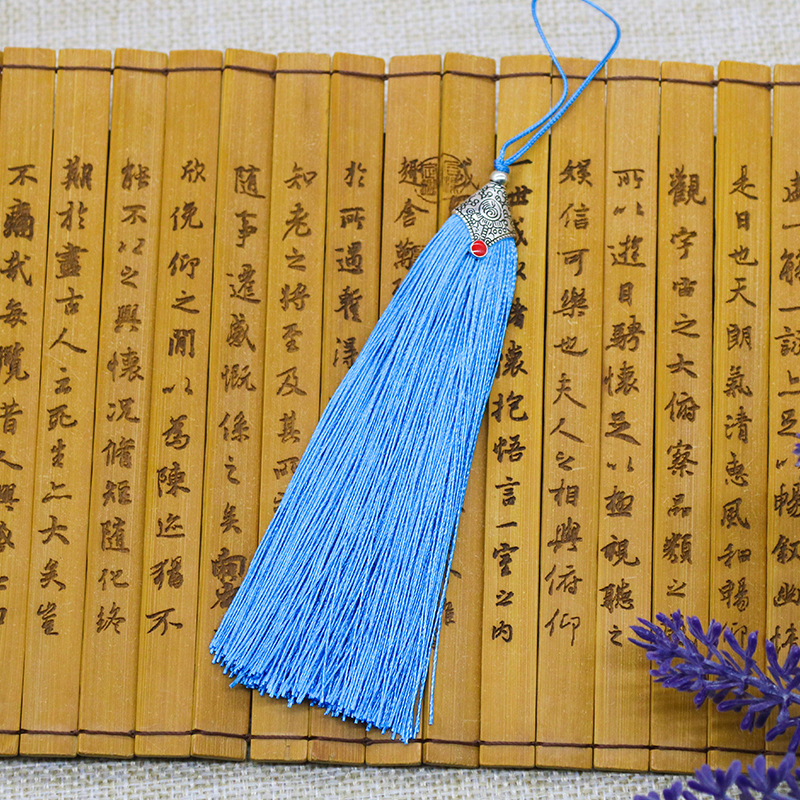 盛一觴一詠亦足以暢叙幽情
是日也天朗氣清惠風和暢
觀宇宙之大俯察品類之
所以遊目騁懷足以極視聽之
娛信可樂也夫人之相與俯仰
一世或取諸懷抱悟言一室之內
或
趣舍萬
於所遇暫得
知老之將至及其所
隨事遷感慨係之矣向之
欣俛仰之間以為陳迹猶不
能不以之興懷況脩短隨化終
期於盡古人云死生亦大矣豈
不痛哉每攬昔人興感之由